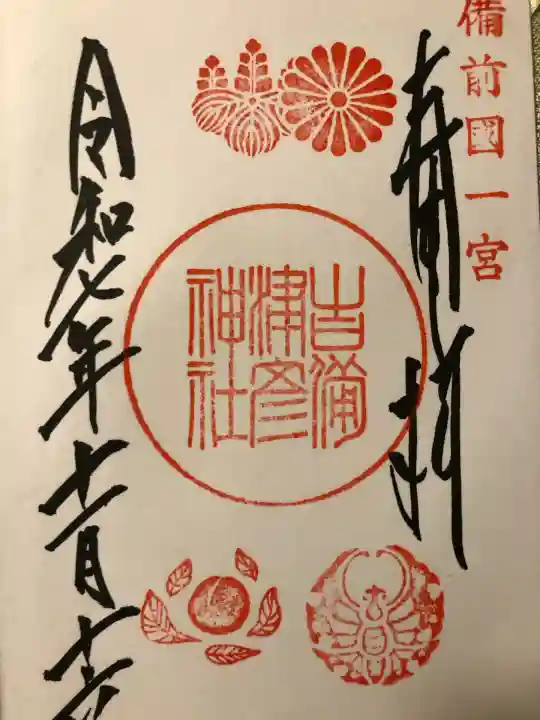 備前国一宮
奉拝
吉備
津彦
神社
令和七年十一月十